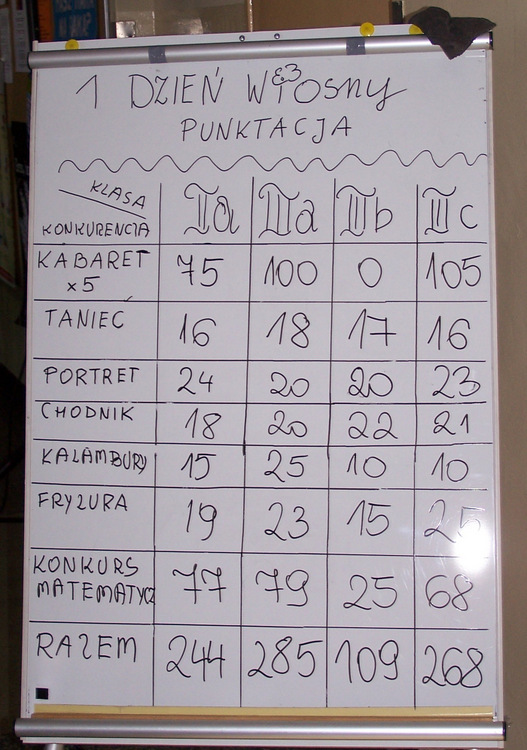 1 DZIEŃ WIOSNY
PUNKTACJA
KLASA
KONKURENCJA IIa IIIa IIIb IIIc
KABARET x5 75 100 0 105
TANIEC 16 18 17 16
PORTRET 24 20 20 23
CHODNIK 18 20 22 21
KALAMBURY 15 25 10 10
FRYZURA 19 23 15 25
KONKURS MATEMATYCZ 77 79 25 68
RAZEM 244 285 109 268